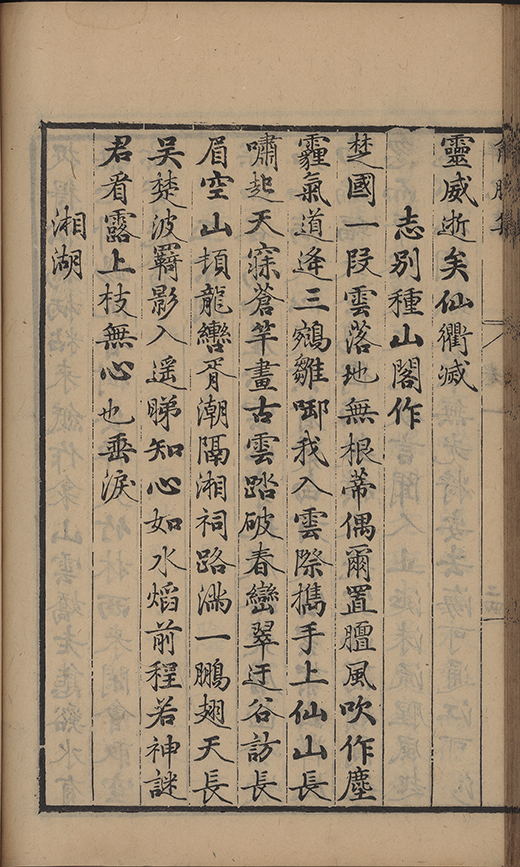 靈威逝矣仙衢滅
志別種山閣作
楚國一段雲落地無根蒂偶爾置膻風吹作塵
霾氣道逢三鵷雛啣我入雲際携手上仙山長
嘯起天寐蒼竿畫古雲踏破春巒翠迂谷訪長
眉空山頓龍轡胥潮隔湘祠路滿一鵬翅天長
吳楚波羇影入遥睇知心如水熖前程若神謎
君看露上枝無心也垂淚
湘湖